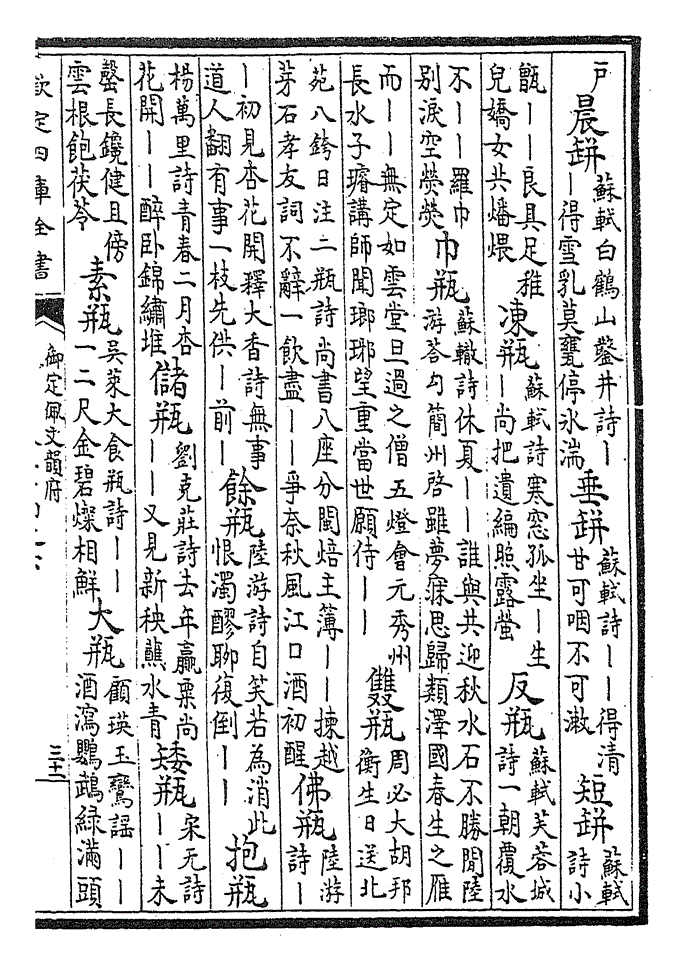 戶晨缾蘇軾白鶴山鑿井詩丨丨得雪乳莫甕停氷湍垂缾蘇軾詩丨丨得清甘可咽不可漱短缾蘇軾詩小
甑丨丨良具足稚兒嬌女共燔煨凍瓶蘇軾詩寒窓孤坐丨生丨尚把遺編照露螢反瓶蘇軾芙蓉城詩一朝覆水
不丨丨羅巾別淚空熒熒巾瓶蘇轍詩休夏丨丨誰與共迎秋水石不勝閒陸游荅勾簡州啓雖夢寐思歸類澤國春生之雁
而丨丨無定如雲堂旦過之僧五燈會元秀州長水子璿講師聞瑯琊望重當世願侍丨丨雙瓶周必大胡邦衡生日送北
苑八銙日注二瓶詩尚書八座分閩焙主簿丨丨揀越芽石孝友詞不辭一飲盡丨丨爭奈秋風江口酒初醒佛瓶陸游詩丨
丨初見杏花開釋大香詩無事道人翻有事一枝先供丨前丨餘瓶陸游詩自笑若為消此恨濁醪聊復倒丨丨抱瓶
楊萬里詩青春二月杏花開丨丨醉卧錦繡堆儲瓶劉克莊詩去年贏粟尚丨丨又見新秧蘸水青矮瓶宋无詩丨丨未
罄長鑱健且傍雲根飽茯苓素瓶吳萊大食瓶詩丨丨一二尺金碧燦相鮮大瓶顧瑛玉鸞謡丨丨酒瀉鸚鵡綠滿頭
欽定四庫全書
御定佩文韻府